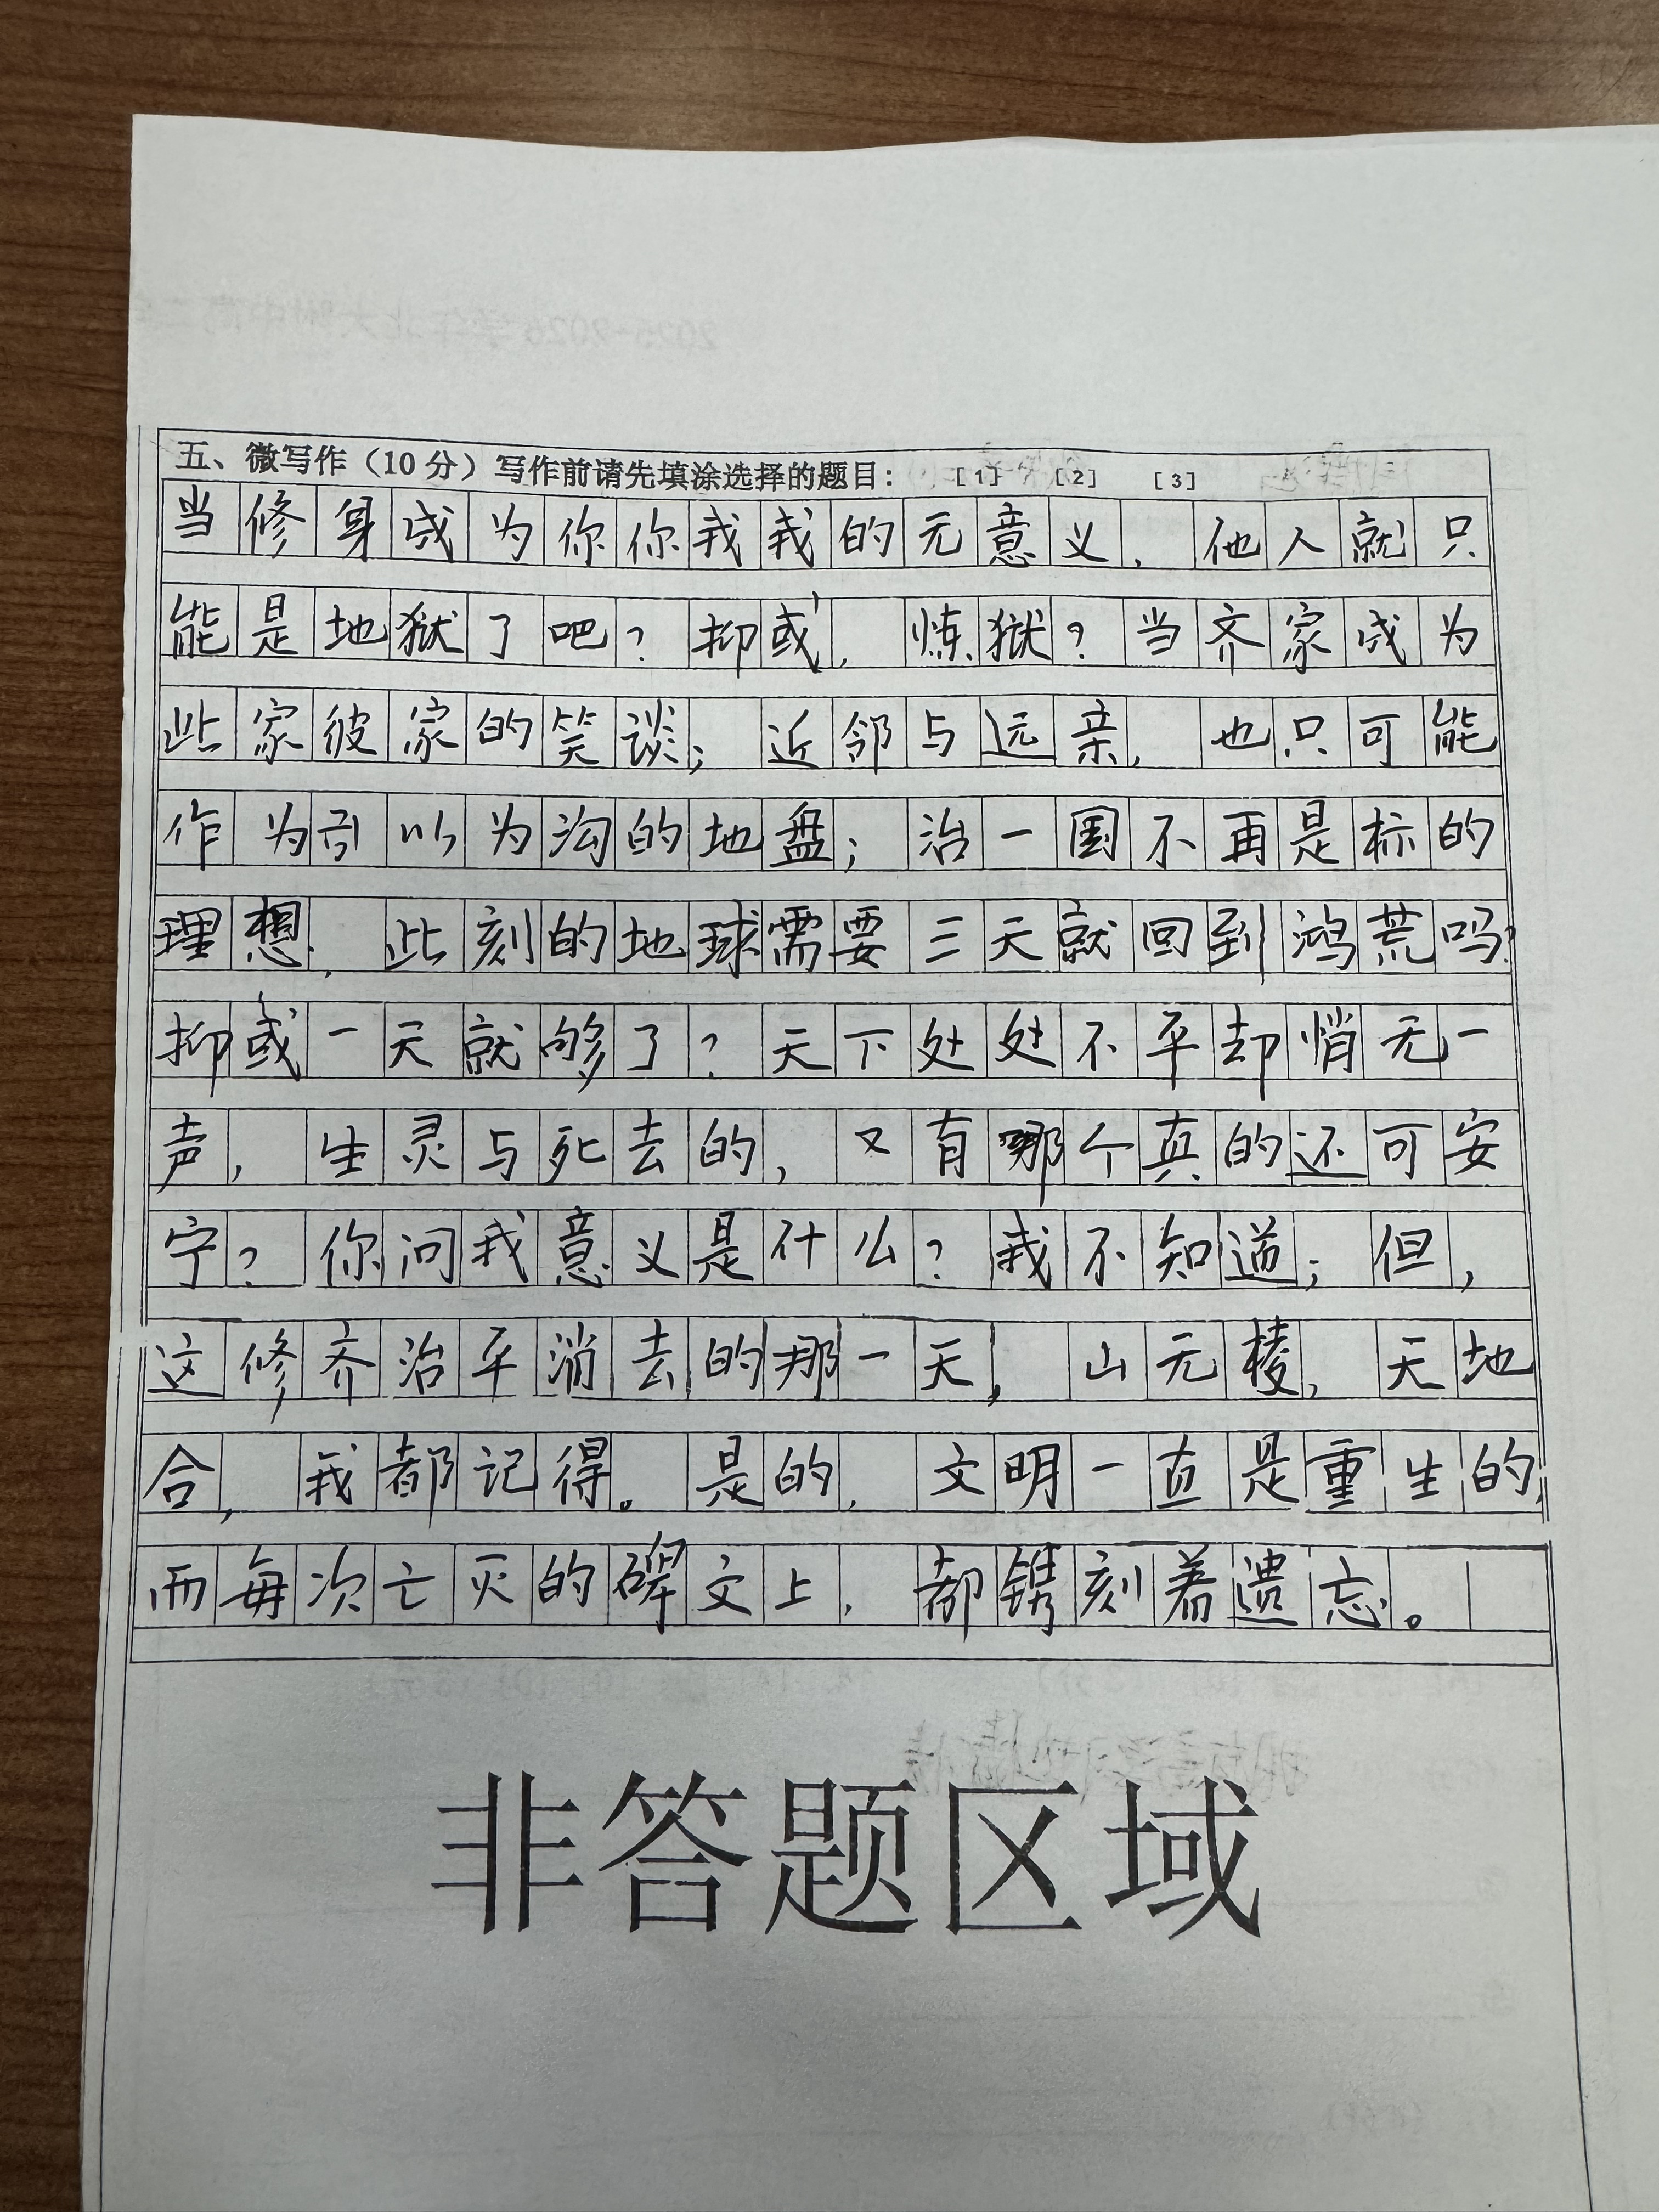 五、微写作（10分）写作前请先填涂选择的题目： [1] [2] [3]
当修身成为你你我我的无意义，他人就只
能是地狱了吧？抑或，炼狱？当齐家成为
此家彼家的笑谈；近邻与远亲，也只可能
作为引以为沟的地盘；治一国不再是标的
理想，此刻的地球需要三天就回到鸿荒吗？
抑或一天就够了？天下处处不平却悄无一
声，生灵与死去的，又有哪个真的还可安
宁？你问我意义是什么？我不知道；但，
这修齐治平消去的那一天，山无棱，天地
合，我都记得。是的，文明一直是重生的，
而每次亡灭的碑文上，都镌刻着遗忘。
非答题区域